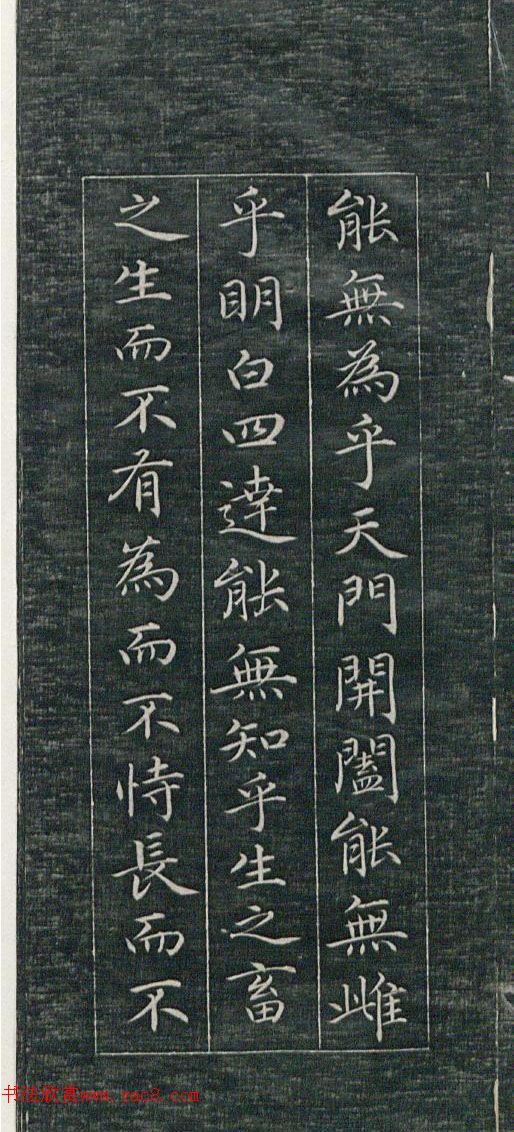 能無為乎天門開闔能無雌
乎明白四達能無知乎生之畜
之生而不有為而不恃長而不
书法欣赏www.yac8.com